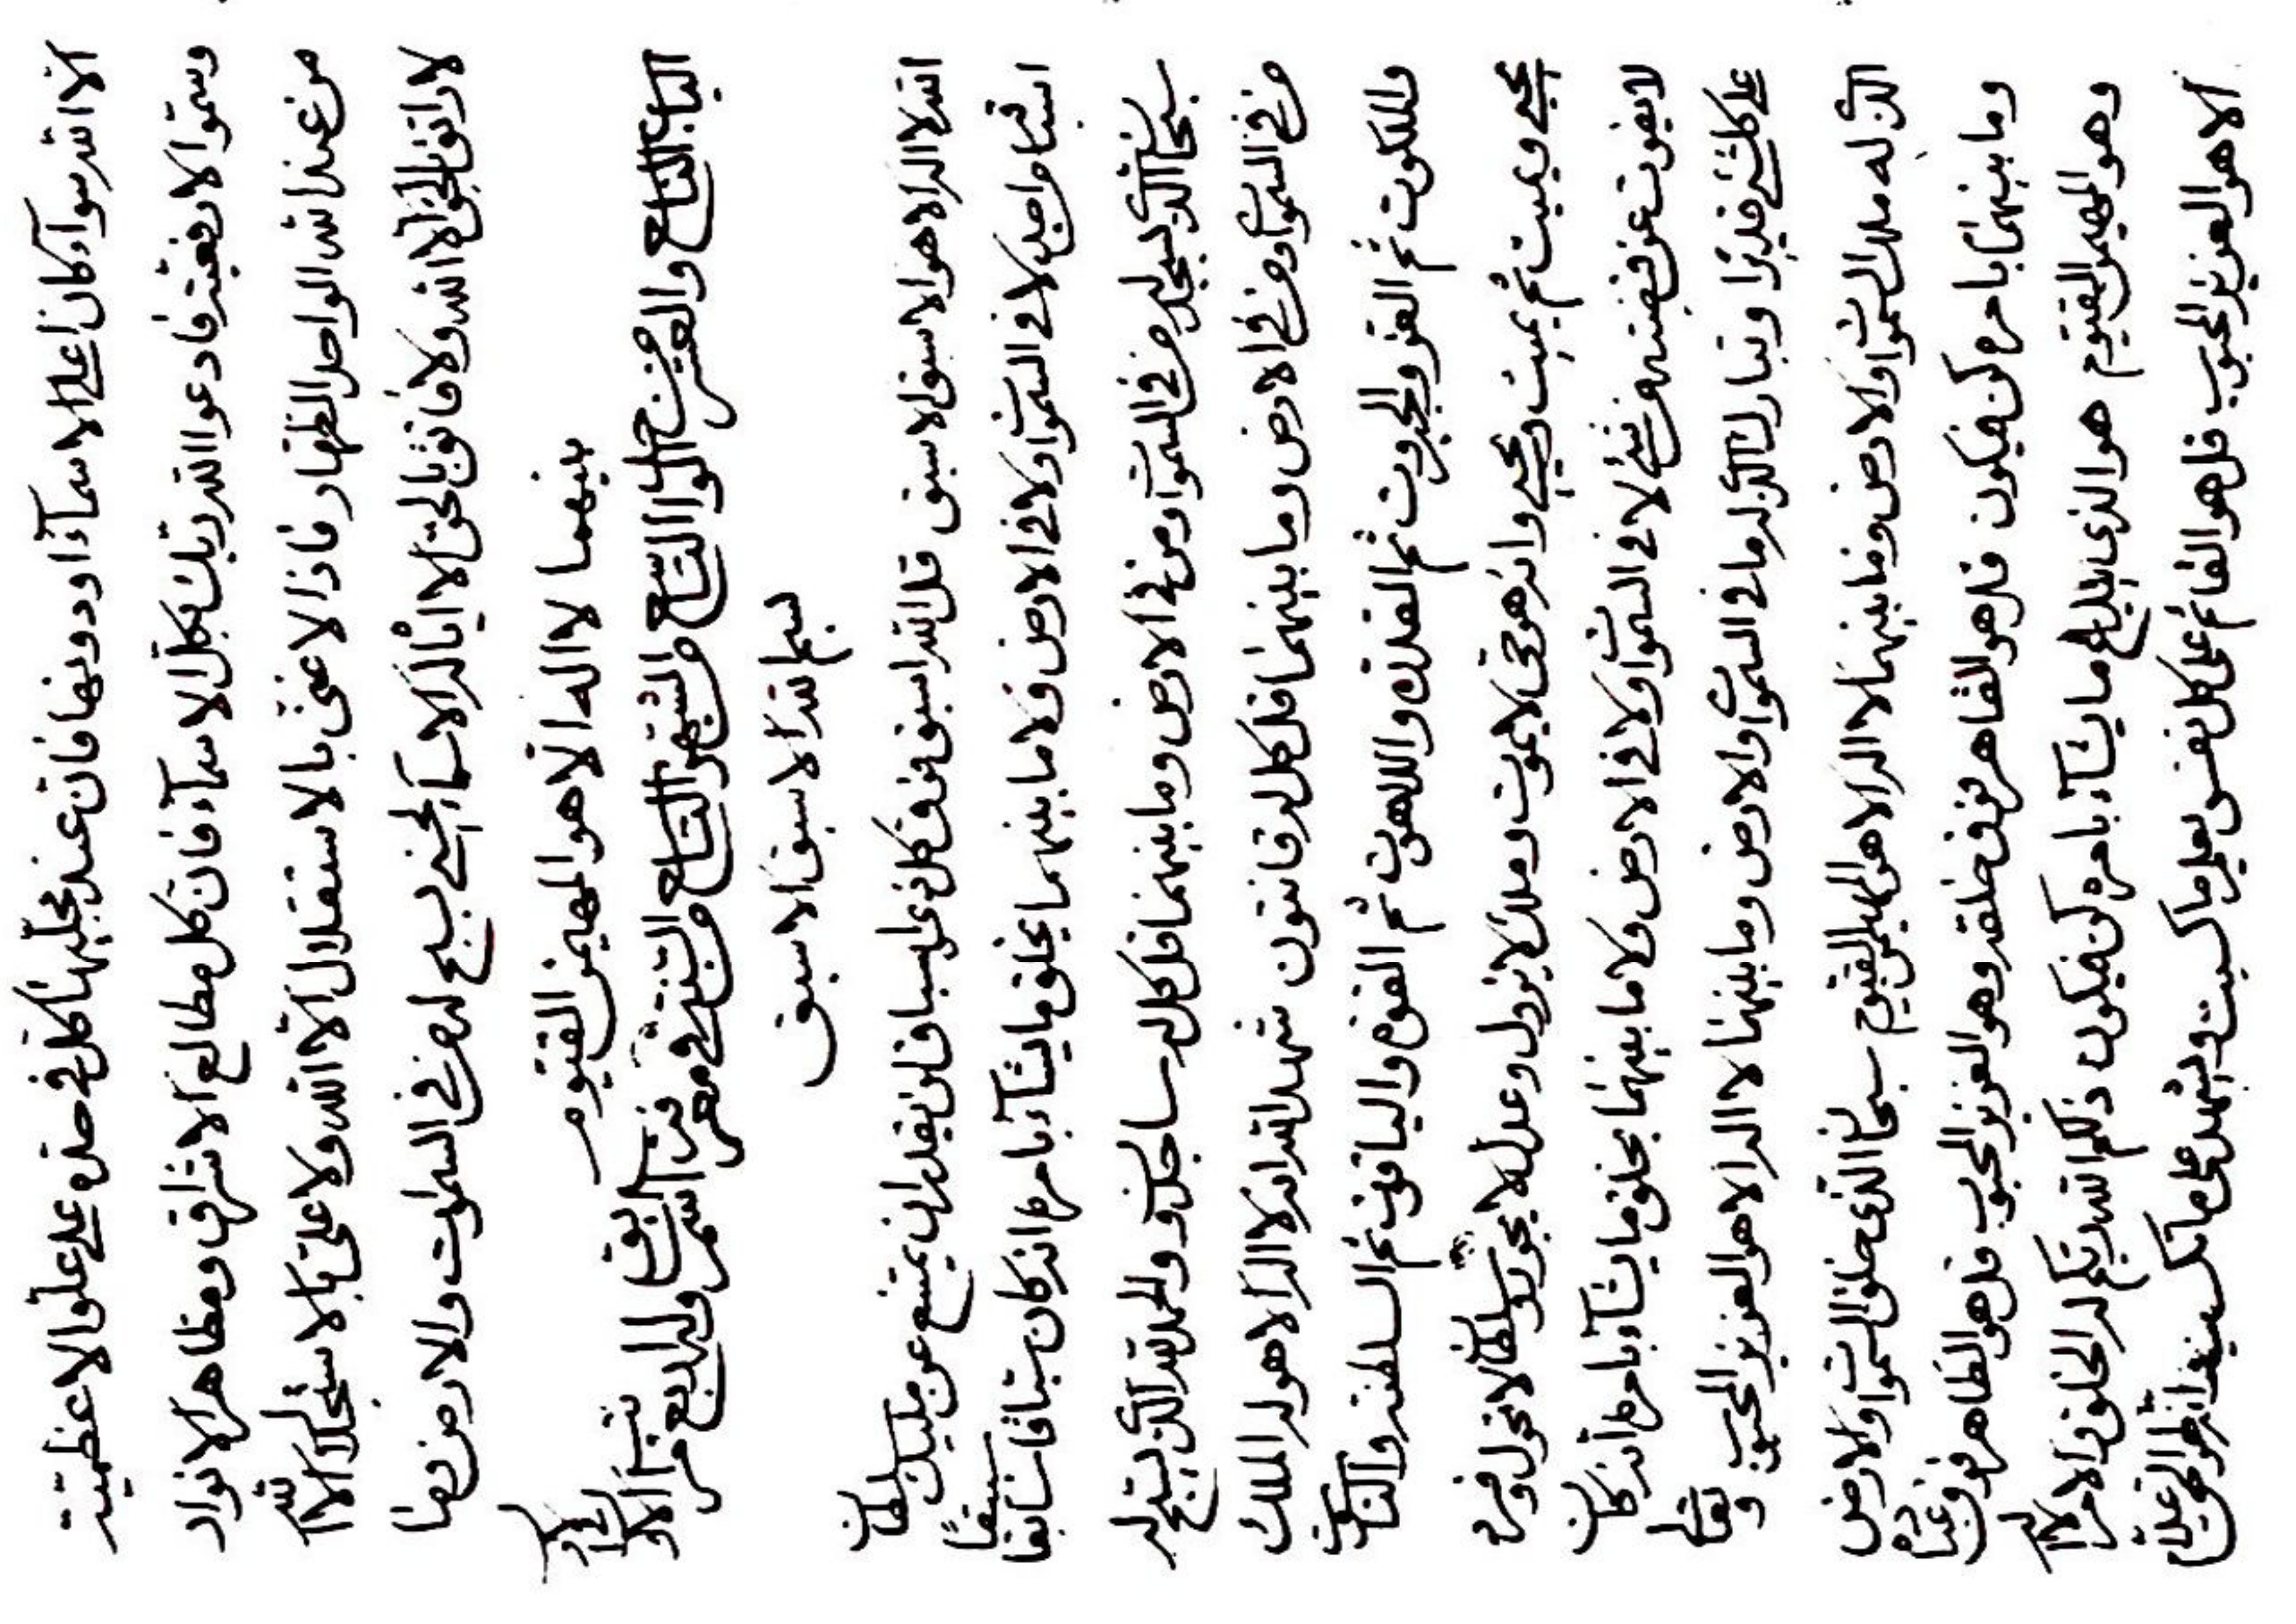 الا الله سواء كان اعلى الاسماء او دونها فان عند مجليها كل في حده على علو الاعظمية
وسموا الا بغيته فادعوا الله ربك بكل الاسماء فان كل مطالع الاشراق ومظاهر الانوار
من عند الله الواحد الظهار فاذا لا غنى بالاستقلال الا الله ولا على بالاستجلال الا الله
لا راتق بالحق الا الله ولا فاتق بالحق الا اياه له الاسماء الحسنى يسبح له من في السموات والارض وما
بينهما لا اله الا هو المهيمن القيوم
الباب التاسع والعشر من الواحد التاسع من الشهر التاسع من السنة في معرفة اسم السابق وله اربع مراتب الاول في الاول
بسم الله الاسبق الاسبق
الله لا اله الا هو الاسبق الاسبق قل الله اسبق فوق كل ذي اسباق لن يقدر ان يمتنع عن مليك سلطان
اسباقه من احد لا في السموات ولا في الارض ولا ما بينهما يخلق ما يشاء بامره انه كان سباقا سابقا سبيقا
سبحان الذي يسجد له من في السموات ومن في الارض وما بينهما قل كل له ساجدون والحمد لله الذي يسبح له
من في السموات ومن في الارض وما بينهما قل كل له قانتون شهد الله انه لا اله الا هو له الملك
والملكوت ثم العز والجبروت ثم القدرة واللاهوت ثم القوة والياقوت ثم السلطنة والناسوت
يحيي ويميت ثم يميت ويحيي وانه هو حي لا يموت وملك لا يزول وعدل لا يجور وسلطان لا يحول وفرد
لا يفوت عن قبضته من شيء لا في السموات ولا في الارض ولا ما بينهما يخلق ما يشاء بامره انه كان
على كل شيء قديرا وتبارك الذي له ما في السموات والارض وما بينهما لا اله الا هو العزيز المحبوب وتعالى
الذي له ملك السموات والارض وما بينهما لا اله الا هو المهيمن القيوم سبحان الذي خلق السموات والارض
وما بينهما بامره كن فيكون قل هو القاهر فوق خلقه وهو العزيز المحبوب قل هو الظاهر فوق عباده
وهو المهيمن القيوم هو الذي يبدع ما يشاء بامره كن فيكون ذلكم الله ربكم له الخلق والامر لا اله
الا هو العزيز المحبوب قل هو القائم على كل نفس يعلم ما كسبت ويشهد على ما تكسب